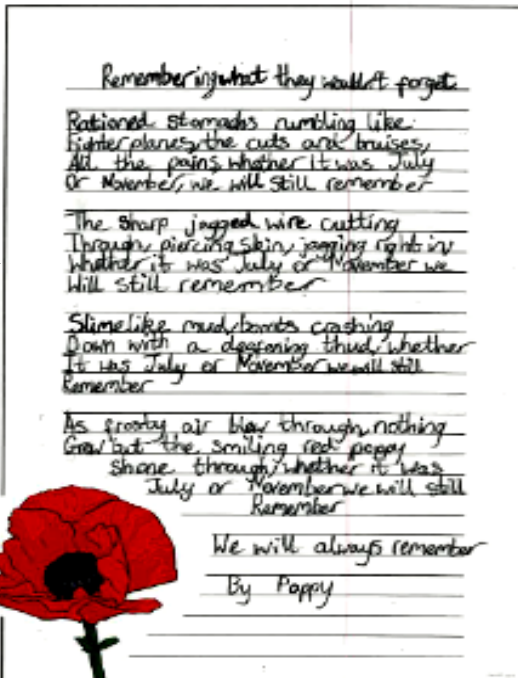 Remembering what they wouldn't forget
Rationed stomachs rumbling like
Fighter planes, the cuts and bruises,
All the pains, whether it was July
Or November, we will still remember
The sharp jagged wire cutting
Through, piercing skin, jagging right in
Whether it was July or November we
Will still remember
Slimelike mud, bombs crashing
Down with a deafening thud, whether
It was July or November we will still
Remember
As frosty air blew through, nothing
Grew but the smiling red poppy
Shone through, whether it was
July or November we will still
Remember
We will always remember
By Poppy